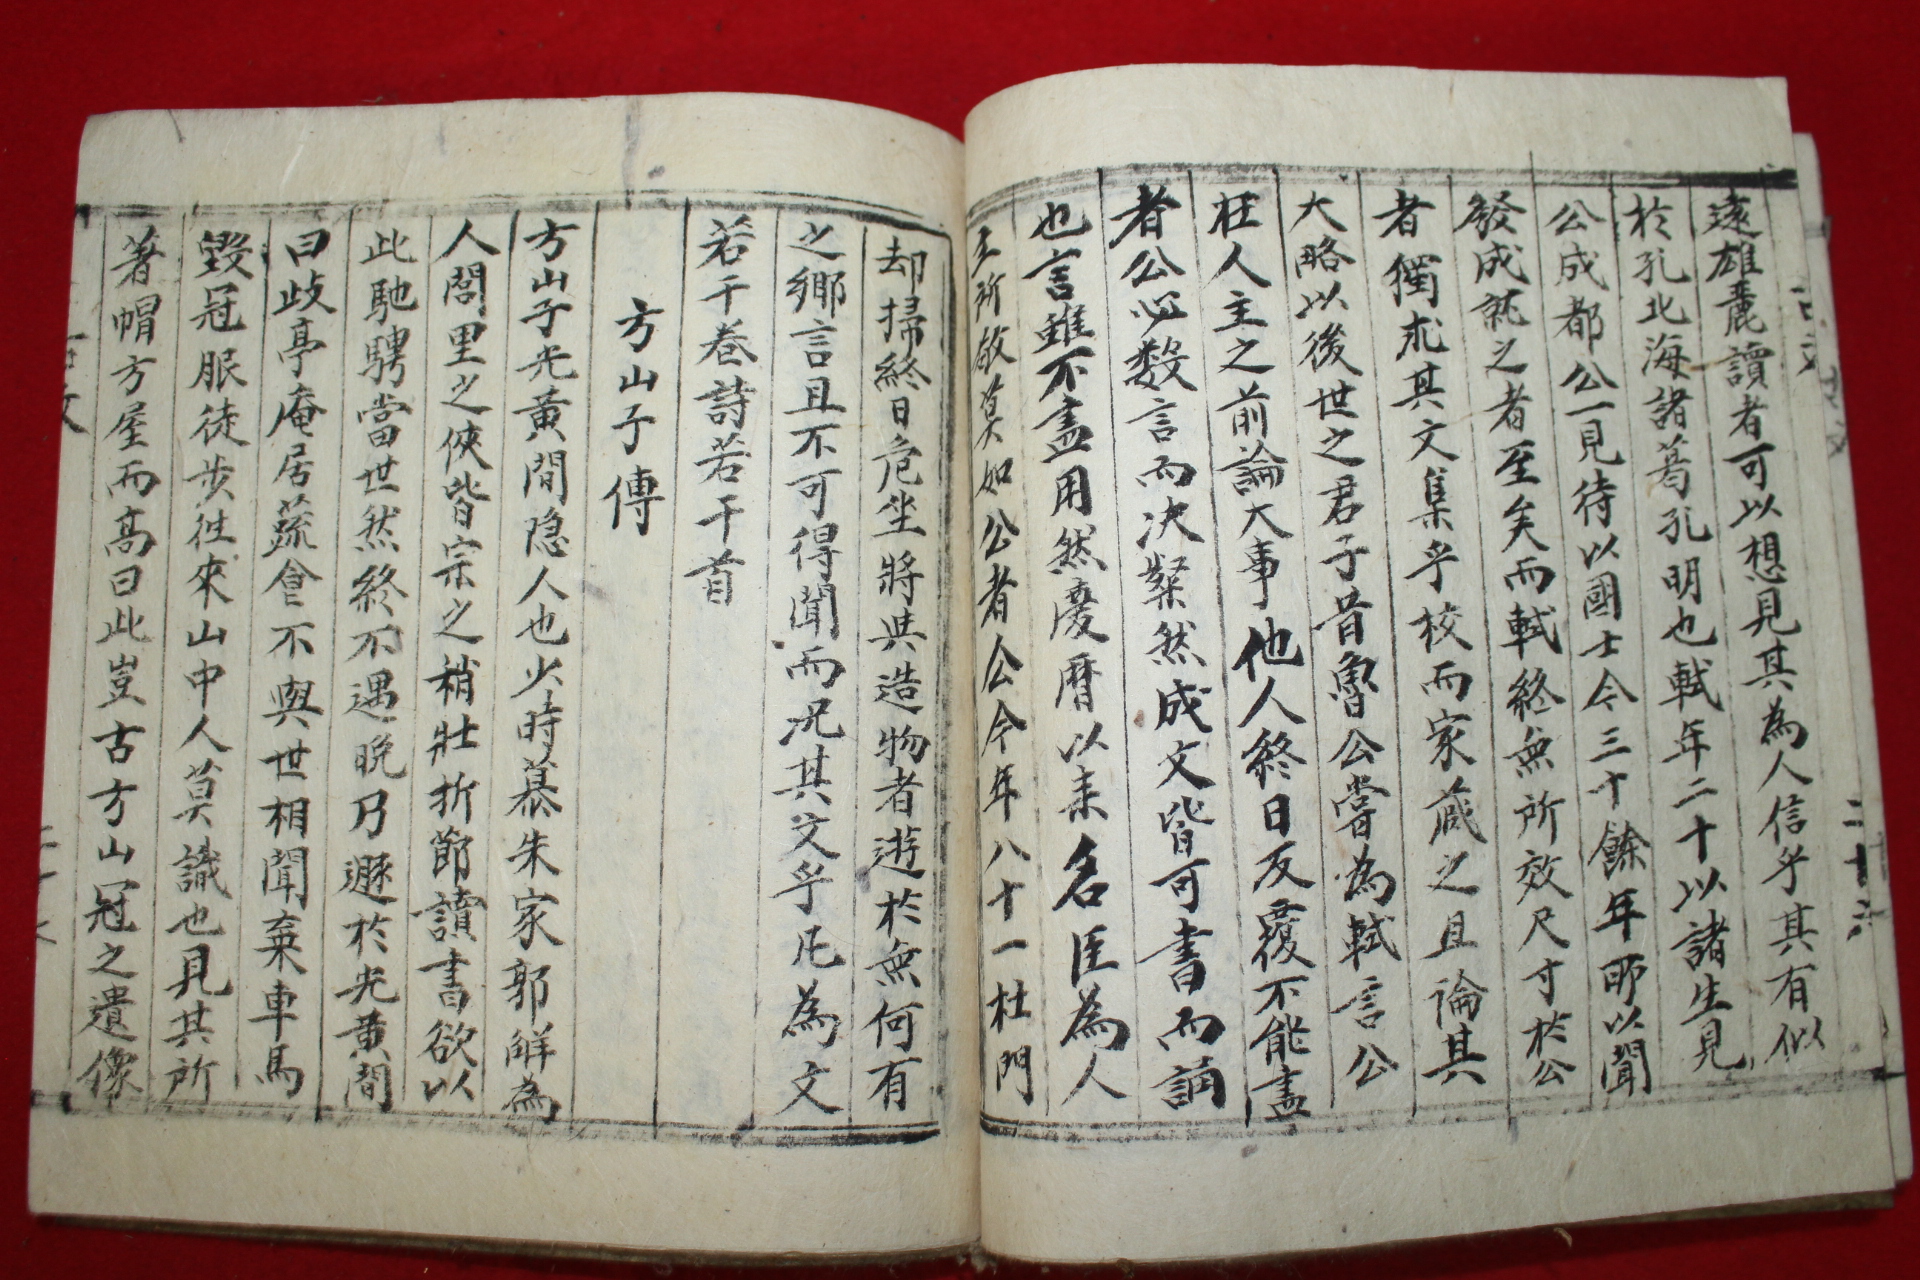 遠雄麗讀者可以想見其為人信乎其有似
於孔北海諸葛孔明也軾年二十以諸生見
公成都公一見待以國士今三十餘年所以開
發成就之者至矣而軾終無所效尺寸於公
者獨求其文集乎校而家藏之且論其
大略以後世之君子昔魯公嘗為軾言公
在人主之前論大事他人終日反覆不能盡
者公必數言而決粲然成文皆可書而誦
也言雖不盡用然慶曆以來名臣為人
主所敬莫如公者公今年八十一杜門
却掃終日危坐將與造物者遊於無何有
之鄉言且不可得聞而況其文乎凡為文
若干卷詩若干首
方山子傳
方山子光黃間隱人也少時慕朱家郭解為
人閭里之俠皆宗之稍壯折節讀書欲以
此馳騁當世然終不遇晚乃遯於光黃間
曰歧亭庵居蔬食不與世相聞棄車馬
毀冠服徒步往來山中人莫識也見其所
著帽方屋而高曰此豈古方山冠之遺像